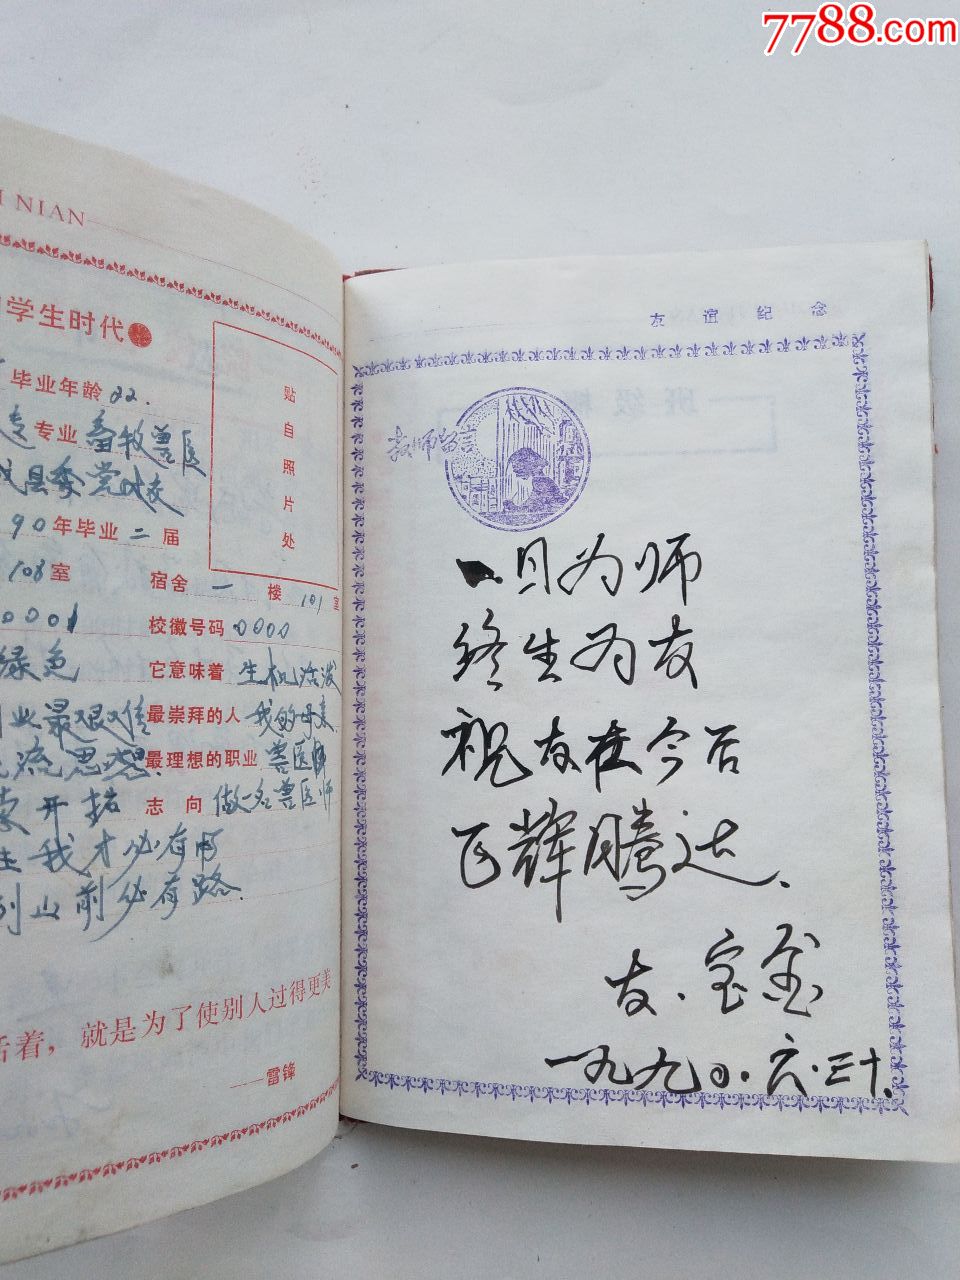 7788.com
NIAN
学生时代
毕业年龄 22.
专业 畜牧兽医
县委党校
90年毕业 二 届
108室 宿舍 一 楼 101 室
0001 校徽号码 0000
绿色 它意味着 生机活泼
业最艰难 最崇拜的人 我的母亲
流思想. 最理想的职业 兽医师
开拓 志向 做一名兽医师
生我才必有用
到山前必有路.
活着，就是为了使别人过得更美
——雷锋
贴自照片处
友谊纪念
班级
教师留言
一日为师
终生为友
祝友在今后
飞辉腾达.
友.宝金
一九九0.六.三十.